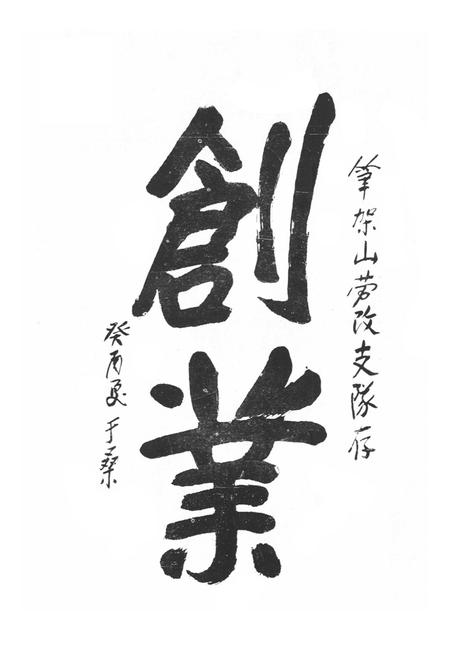 筆架山劳改支隊存
創業
癸酉夏于桑